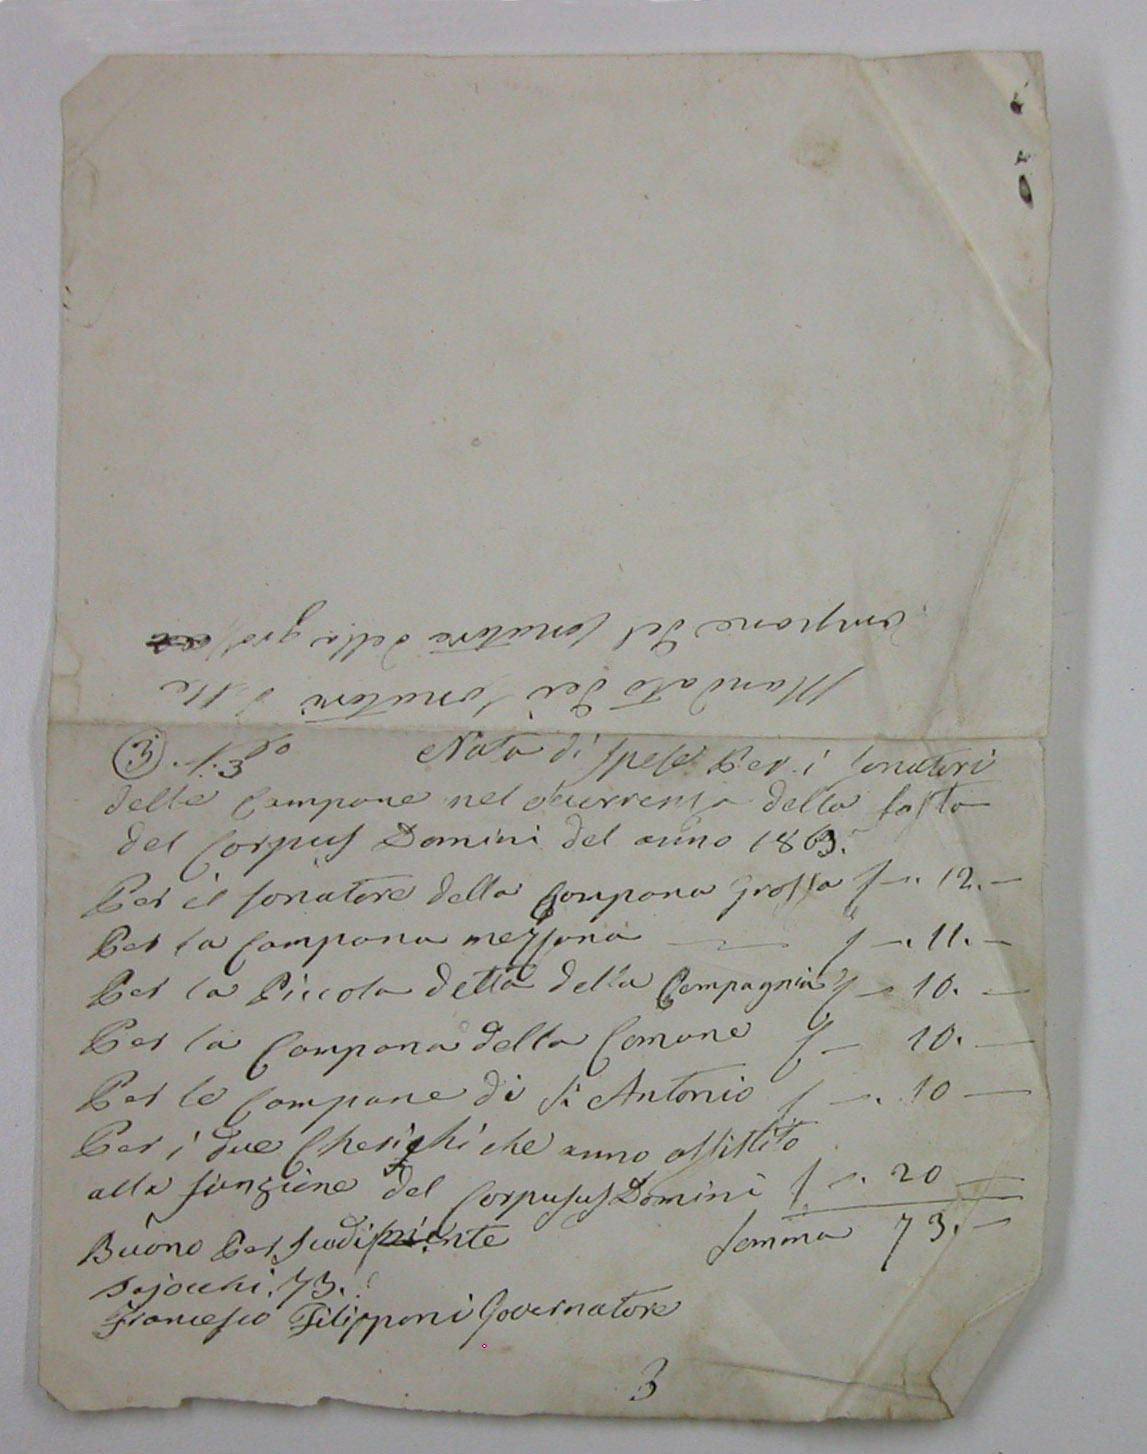 Mandato dei Sonatori delle
Compane del sonatore della gros
③ . 1.3 do Nota di spese Per i sonatori
delle Campane nel ocurrenza della fasta
del Corpus Domini del anno 1863.
Per il sonatore della Compana Grossa f —. 12. —
Per la Compana mezzana — f —. 11. —
Per la Piccola detta della Compagnia f — 10. —
Per la Compana della Comune f — 10. —
Per le Compane di S. Antonio f —. 10 —
Per i due Cherighi che anno assistito
alla funzione del Corpusus Domini f —. 20 —
Buono Per scudi niente Somma 73. —
Bajocchi. 73.
Francesco Filipponi Governatore
3